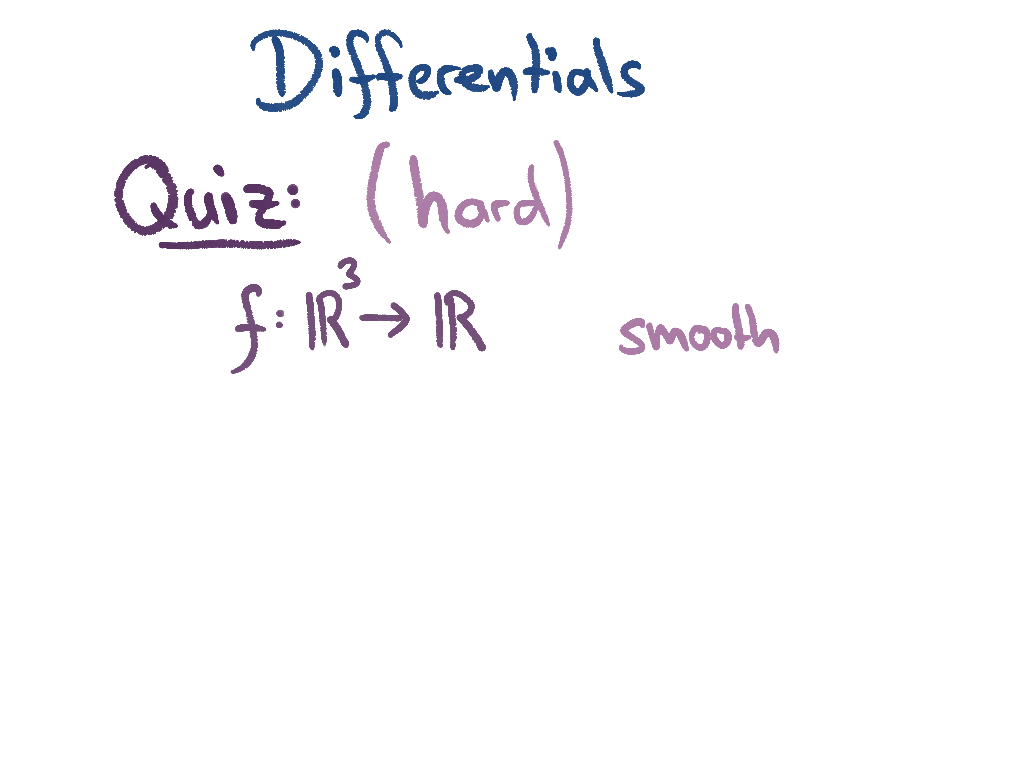 Differentials
Quiz: (hard)
f: ℝ³ → ℝ smooth